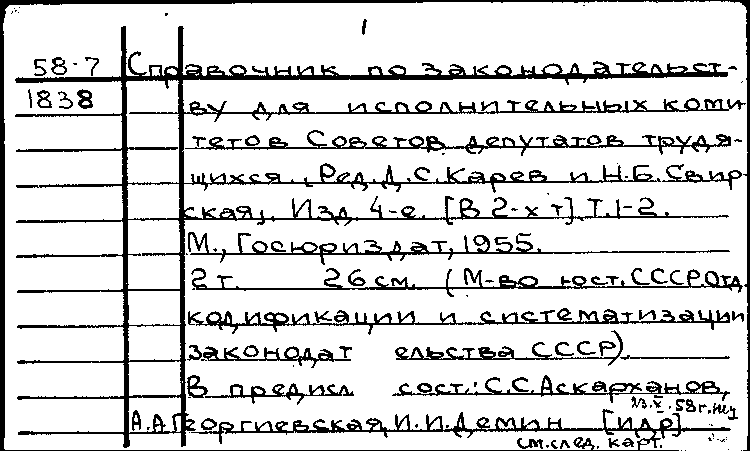 1
58-7 Справочник по законодательст-
1838 ву для исполнительных коми
тетов Советов депутатов трудя-
щихся. (Ред. Д.С. Карев и Н.Б. Свир-
ская). Изд. 4-е. [В 2-х т]. Т.1-2.
М., Госюриздат, 1955.
2 т. 26 см. (М-во юст. СССР. Отд.
кодификации и систематизации
законодат ельства СССР).
В предисл сост.: С.С. Аскарханов,
А.А Георгиевская, И.И. Демин [и др]
см. след. карт.